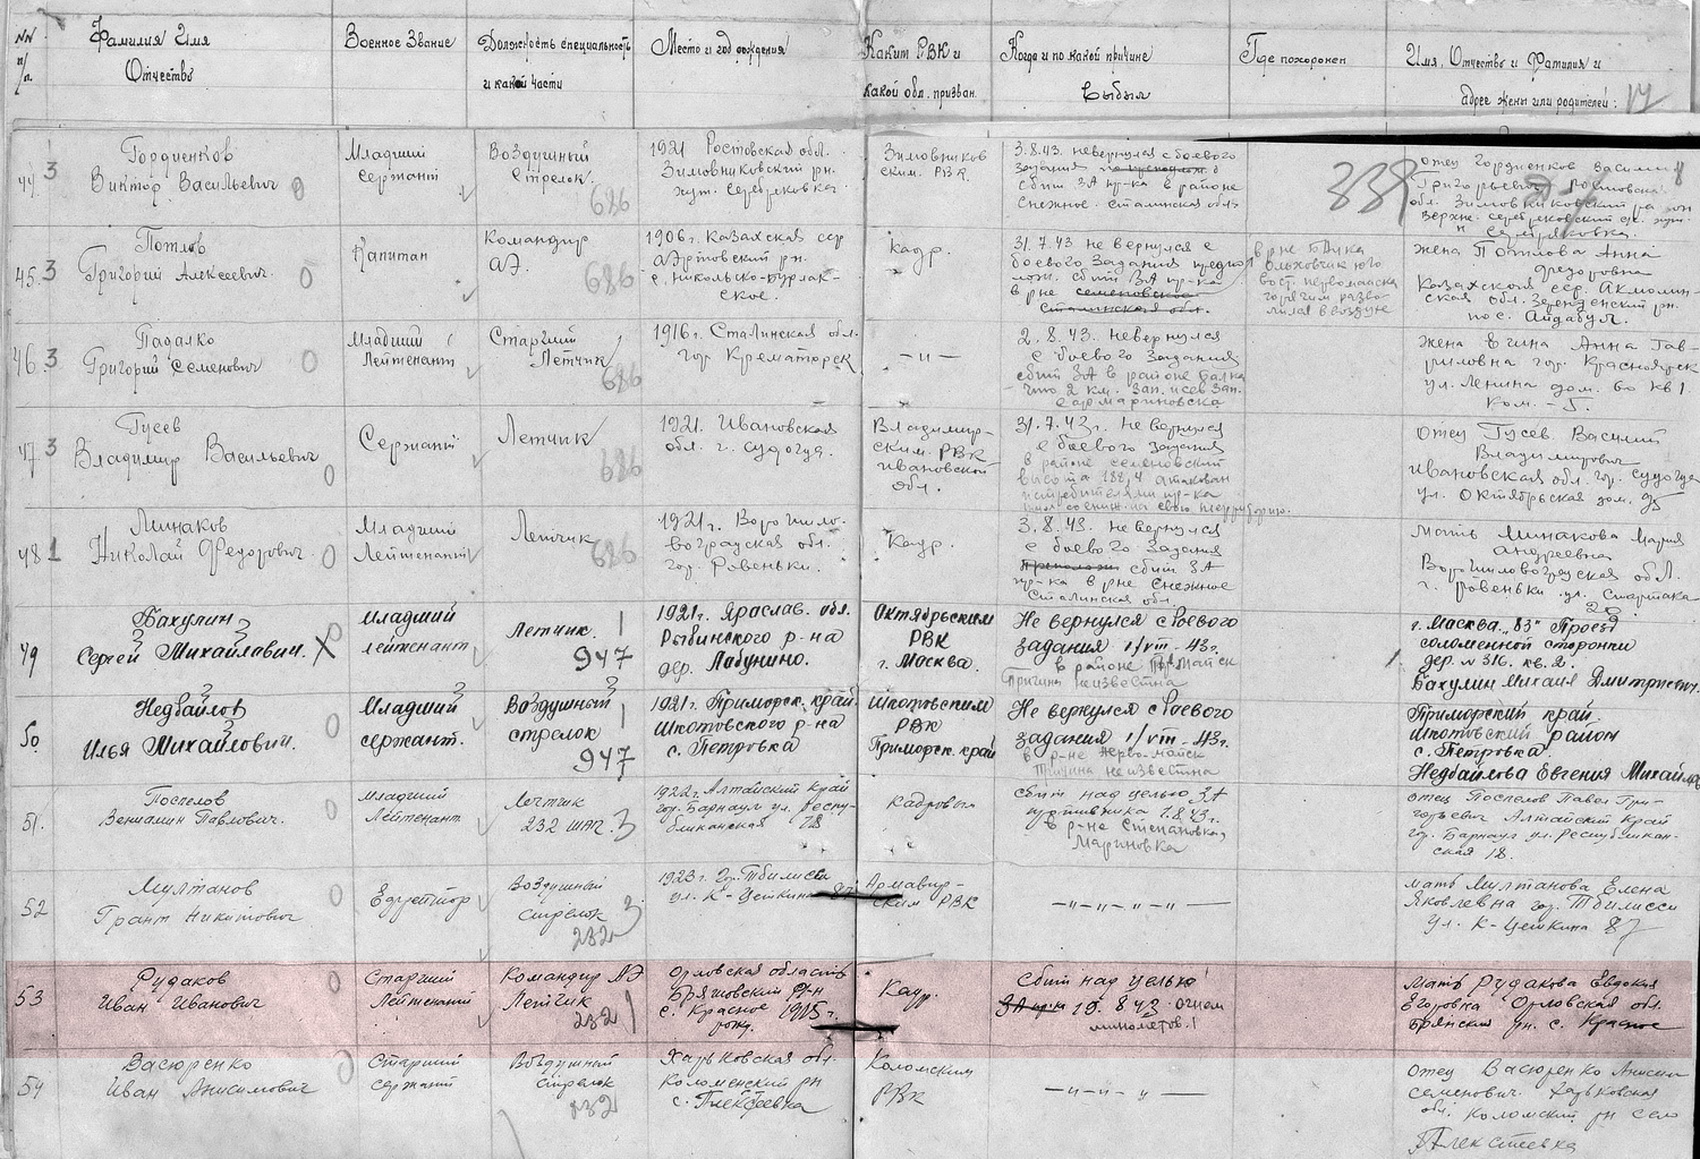 NN п/п.
Фамилия Имя
Отчество
Военное Звание
Должность специальность
и какой части
Место и год рождения
Каким РВК и
какой обл. призван.
Когда и по какой причине
выбыл
Где похоронен
Имя, Отчество и Фамилия и
адрес жены или родителей:
17
44 3
Гордиенков
Виктор Васильевич
0
Младший
Сержант
Воздушный
Стрелок
686
1921 Ростовская обл.
Зимовниковский рн.
хут. Серебряковка
Зимовников
ским. РВК
3.8.43. невернулся с боевого
задания
сбит ЗА пр-ка в районе
Снежное. Сталинская обл
339
отец Гордиенков Василий
Григорьевич Ростовская
обл. Зимовниковский район
45. 3
Потлов
Григорий Алексеевич.
0
Капитан
Командир
АЭ.
686
1906г. Казахская сср
рн.
с. Никольско-Бурлак-
ское.
Кадр.
31.7.43 не вернулся с
боевого задания предпо
лож. сбит ЗА пр-ка
в рне семеновское
Сталинская обл.
Ольховчик юго
вост. первомайска
жена Потлова Анна
Федоровна
Казахская сср. Акмолин-
ская обл. Зеренденский рн.
пос. Айдабул.
46. 3
Падалко
Григорий Семенович
0
Младший
Лейтенант
Старший
Летчик
686
1916г. Сталинская обл.
гор Крематорск
— " —
2.8.43. невернулся
с боевого задания
сбит ЗА в районе балка
жена Анна Гав-
риловна гор. Красноярск
ул. Ленина дом. 60 кв 1.
ком. - 5.
47 3
Гусев
Владимир Васильевич
0
Сержант
Летчик
686
1921. Ивановская
обл. г. Судогда.
Владимир-
ским. РВК
ивановской
обл.
31.7.43г. не вернулся
с боевого задания
в районе семеновский
высота 188,4 атакован
истребителями пр-ка
Отец Гусев Василий
Владимирович
ивановская обл. гор. Судогда
ул. Октябрьская дом. 95
48 1
Минаков
Николай Федорович
0
Младший
Лейтенант
Летчик
686
1921г. Ворошило-
воградская обл.
гор. Ровеньки.
Кадр.
3.8.43. не вернулся
с боевого задания
сбит ЗА
пр-ка в рне Снежное
Сталинская обл.
Мать Минакова Мария
Андреевна
Ворошиловоградская обл.
г. Ровеньки ул. Спартака
20
49
Бахулин
Сергей Михайлович.
X
0
Младший
лейтенант
Летчик.
947
1921г. Яраслав. обл.
Рыбинского р-на
дер. Лабунино.
Октябрьским
РВК
г. Москва.
Не вернулся с боевого
задания 1/VIII-43г.
Причина неизвестна
г. Москва. "83" Проезд
соломенной сторонки
дер. N 316. кв. 2.
Бахулин Михаил Дмитриевич.
50
Недбайлов
Илья Михайлович.
0
Младший
сержант.
Воздушный
стрелок
947
1921г. Приморск. край.
Шкотовского р-на
с. Петровка
Шкотовским
РВК
Приморск. край
Не вернулся с боевого
задания 1/VIII-43г.
в р-не Перво-майск
Причина неизвестна
Приморский край.
Шкотовский район
с. Петровка.
Недбайлова Евгения Михайл
51.
Поспелов
Вениамин Павлович.
0
Младший
Лейтенант
Летчик
232 шап. 3
1922г. Алтайский Край
гор. Барнаул ул. Респу-
бликанская 18
Кадровый
сбит над целью ЗА
противника 1.8.43г.
в р-не Степановка,
Мариновка
отец Поспелов Павел Гри-
горьевич Алтайский Край
гор. Барнаул ул. Республикан-
ская 18.
52
Мултанов
Грант Никитович
0
Ефрейтор
Воздушный
стрелок 3
232
1923г. Гор. Тбилиси
ул. К-Цеткина 87
Армавир-
ским РВК
— " — " — " —
мать Мултанова Елена
Яковлевна гор. Тбилиси
ул. К-Цеткина 87
53
Рудаков
Иван Иванович
0
Старший
Лейтенант
Командир АЭ
Летчик
232
Орловская область
Брянский р-н
с. Красное 1915г.
рожд.
Кадр.
Сбит над целью
ЗА пр-ка 19.8.43 огнем
минометов.
Мать Рудакова Евдокия
Егоровна Орловская обл.
Брянский рн. с. Красное
54
Васюренко
Иван Анисимович
0
Старший
сержант
Воздушный
стрелок
232
Харьковская обл.
Коломенский рн
с. Алексеевка
Коломским
РВК
— " — " — " —
Отец Васюренко Анисим
семенович. Харьковская
обл. Коломский рн село
Алексеевка